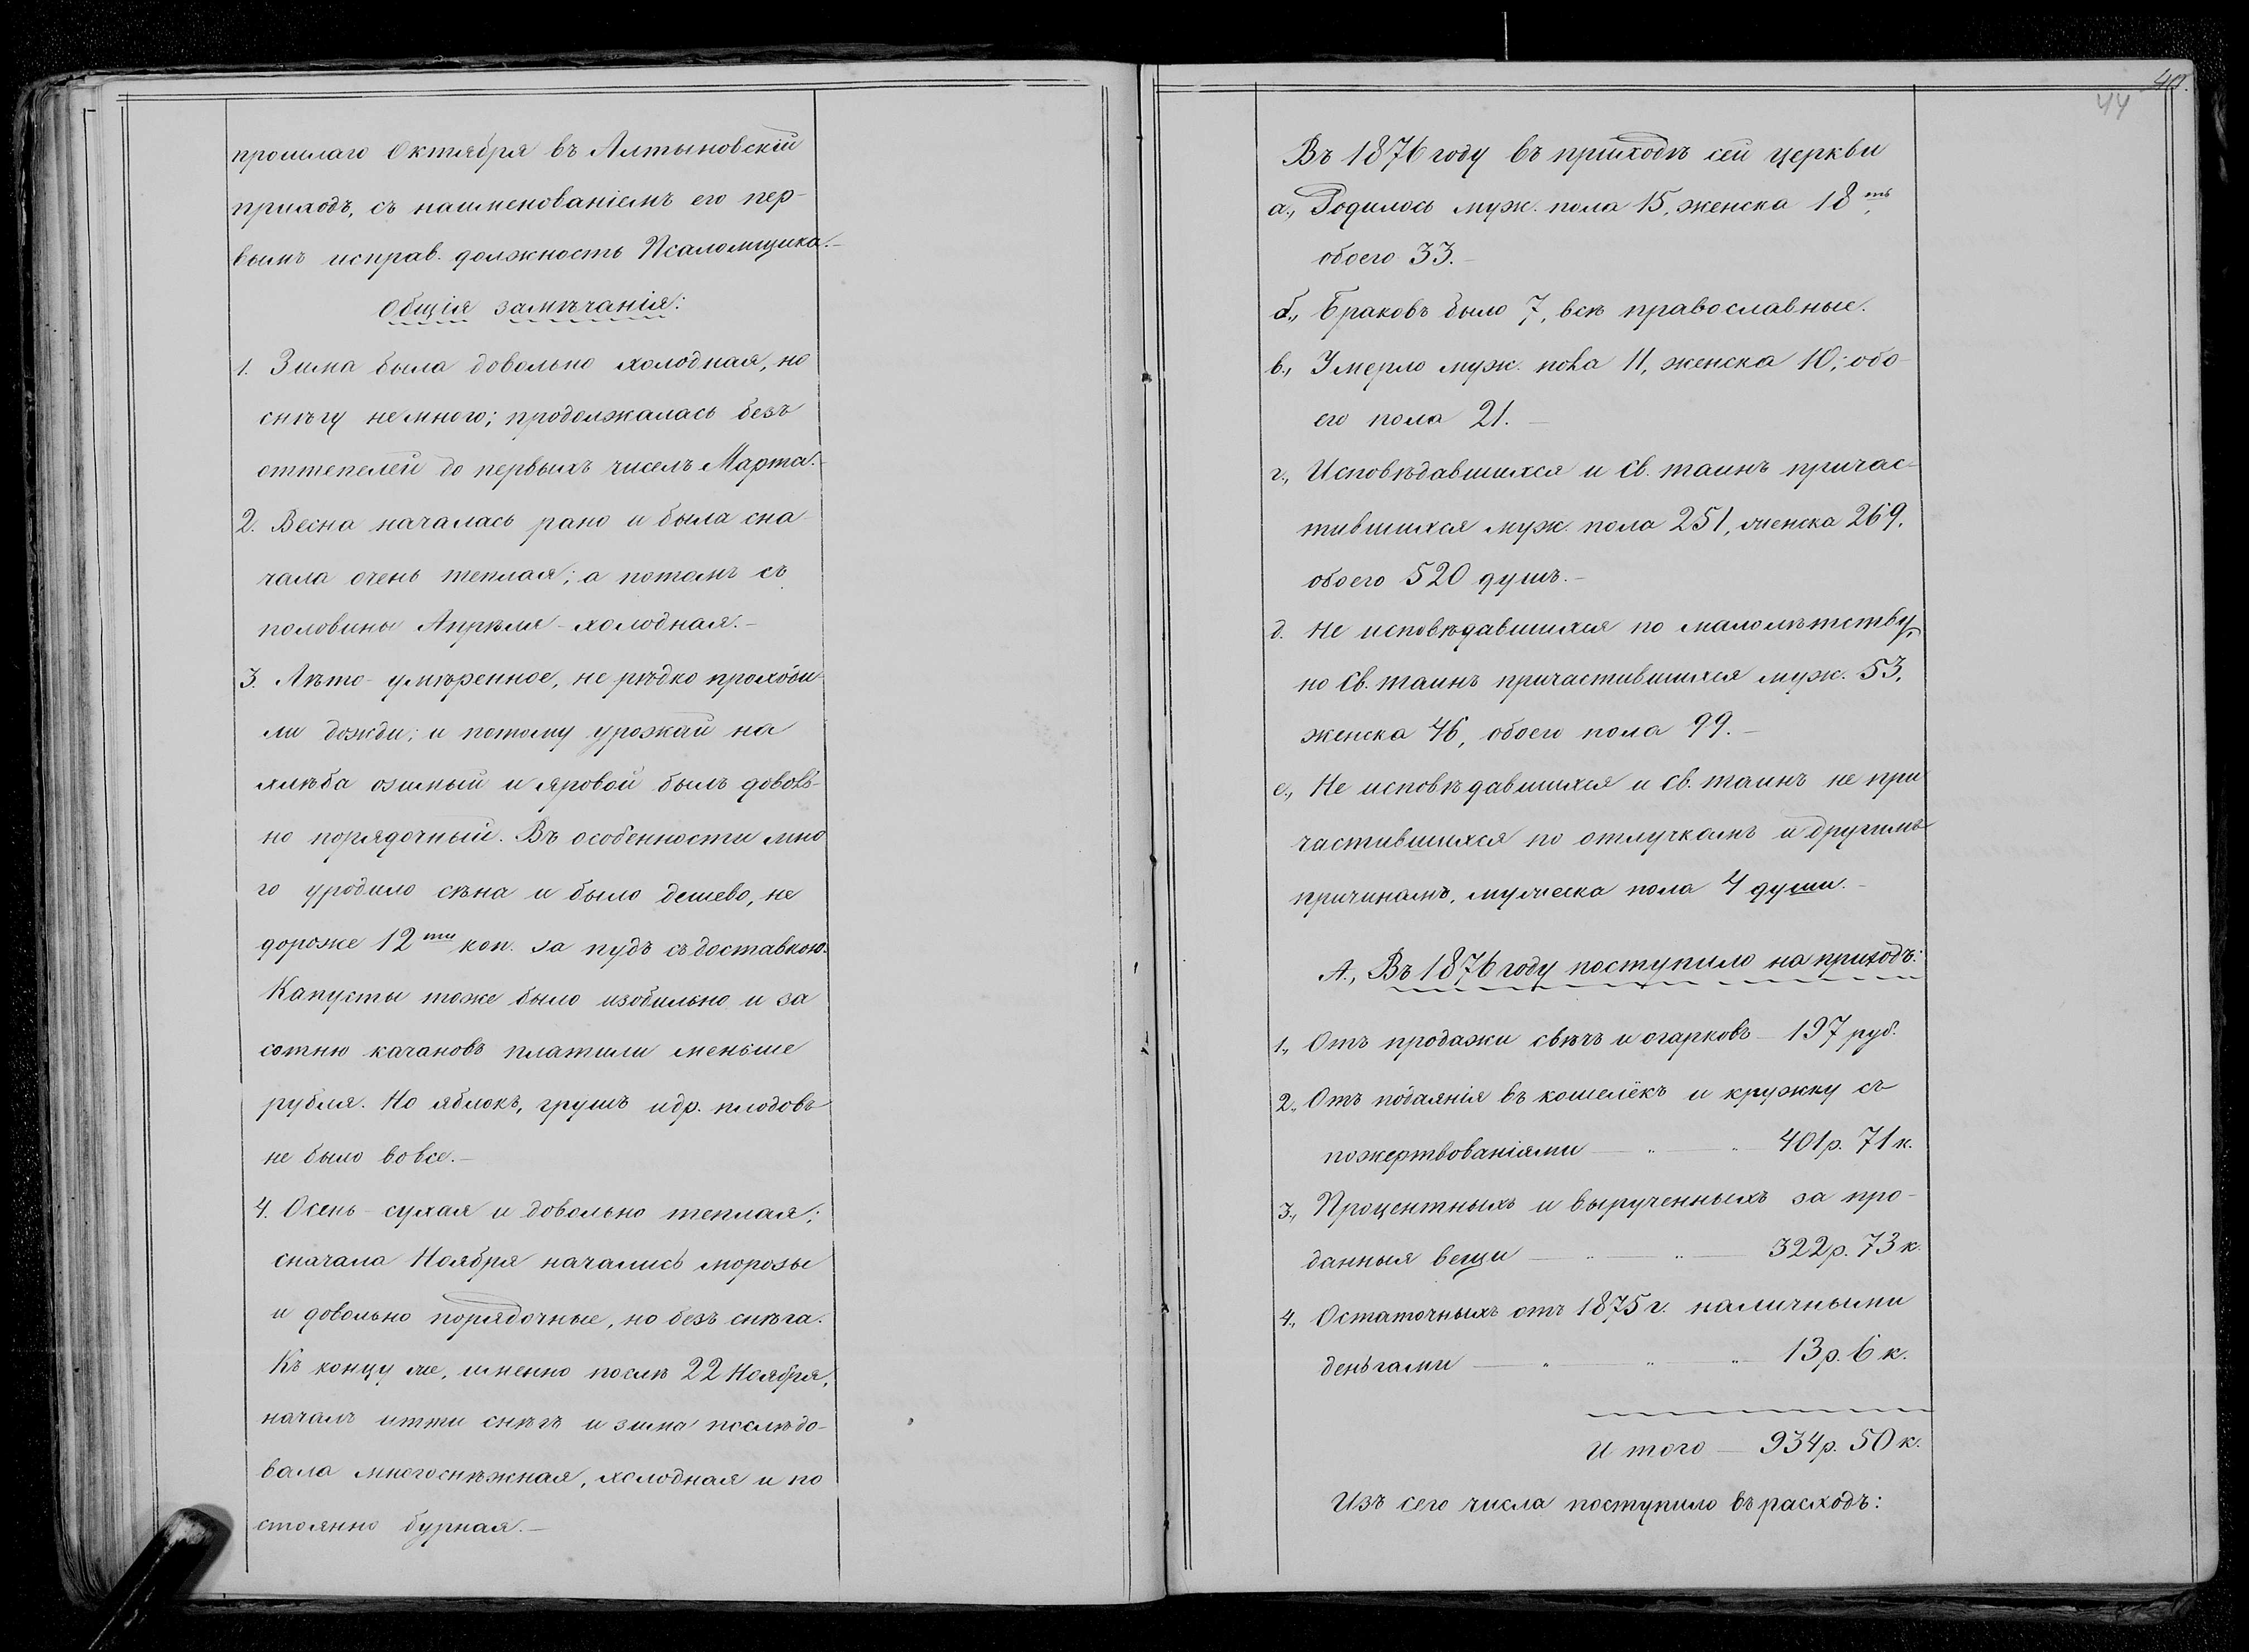 прошлаго Октября въ Алтыновскій
приходъ, съ наименованіемъ его пер-
вымъ исправ. должность Псаломщика.–
Общія замѣчанія:
1. Зима была довольно холодная, но
снѣгу немного; продолжалась безъ
оттепелей до первыхъ чиселъ Марта.–
2. Весна началась рано и была сна-
чала очень теплая; а потомъ съ
половины Апрѣля – холодная.–
3. Лѣто – умѣренное, не рѣдко проходи
ли дожди; и потому урожай на
хлѣба озимый и яровой былъ доволь-
но порядочный. Въ особенности мно
го уродило сѣна и было дешево, не
дороже 12ти коп. за пудъ съ доставкою.
Капусты тоже было изобильно и за
сотню качановъ платили меньше
рубля. Но яблокъ, грушъ и др. плодовъ
не было вовсе.–
4. Осень – сухая и довольно теплая;
сначала Ноября начались морозы
и довольно порядочные, но безъ снѣга.
Къ концу же, именно послѣ 22 Ноября,
началъ итти снѣгъ и зима послѣдо-
вала многоснѣжная, холодная и по
стоянно бурная.–
44
Въ 1876 году въ приходѣ сей церкви
а., Родилось муж. пола 15, женска 18ть,
обоего 33.–
б., Браковъ было 7, всѣ православные.
в., Умерло муж. пола 11, женска 10; обо-
его пола 21.–
г., Исповѣдавшихся и Св. таинъ причас-
тившихся муж. пола 251, женска 269,
обоего 520 душъ.–
д. Не исповѣдавшихся по малолѣтству,
но Св. таинъ причастившихся муж. 53,
женска 46, обоего пола 99.–
е., Не исповѣдавшихся и Св. таинъ не при
частившихся по отлучкамъ и другимъ
причинамъ, мужеска пола 4 души.–
А., Въ 1876 году поступило на приходъ:
1., Отъ продажи свѣчъ и огарковъ – 197 руб.
2., Отъ подаянія въ кошелёкъ и кружку съ
пожертвованіями – „ – „ 401 р. 71 к.
3., Процентныхъ и вырученныхъ за про-
данныя вещи – „ – „ – 322 р. 73 к.
4., Остаточныхъ отъ 1875 г. наличными
деньгами – „ „ „ 13 р. 6 к.
И того – 934 р. 50 к.
Изъ сего числа поступило въ расходъ: